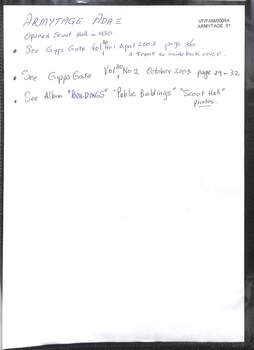 ARMYTAGE ADA E
VF/FAM/0005A
ARMYTAGE 01
Opened Scout Hall in 1930
• See Gypps Gate Vol No 1 April 2003 page 36
+ Front & inside back cover.
• See Gypps Gate Vol No 2 October 2003 page 29-32.
• See Album "BUILDINGS" "Public Buildings" "Scout Hall"
Photos.